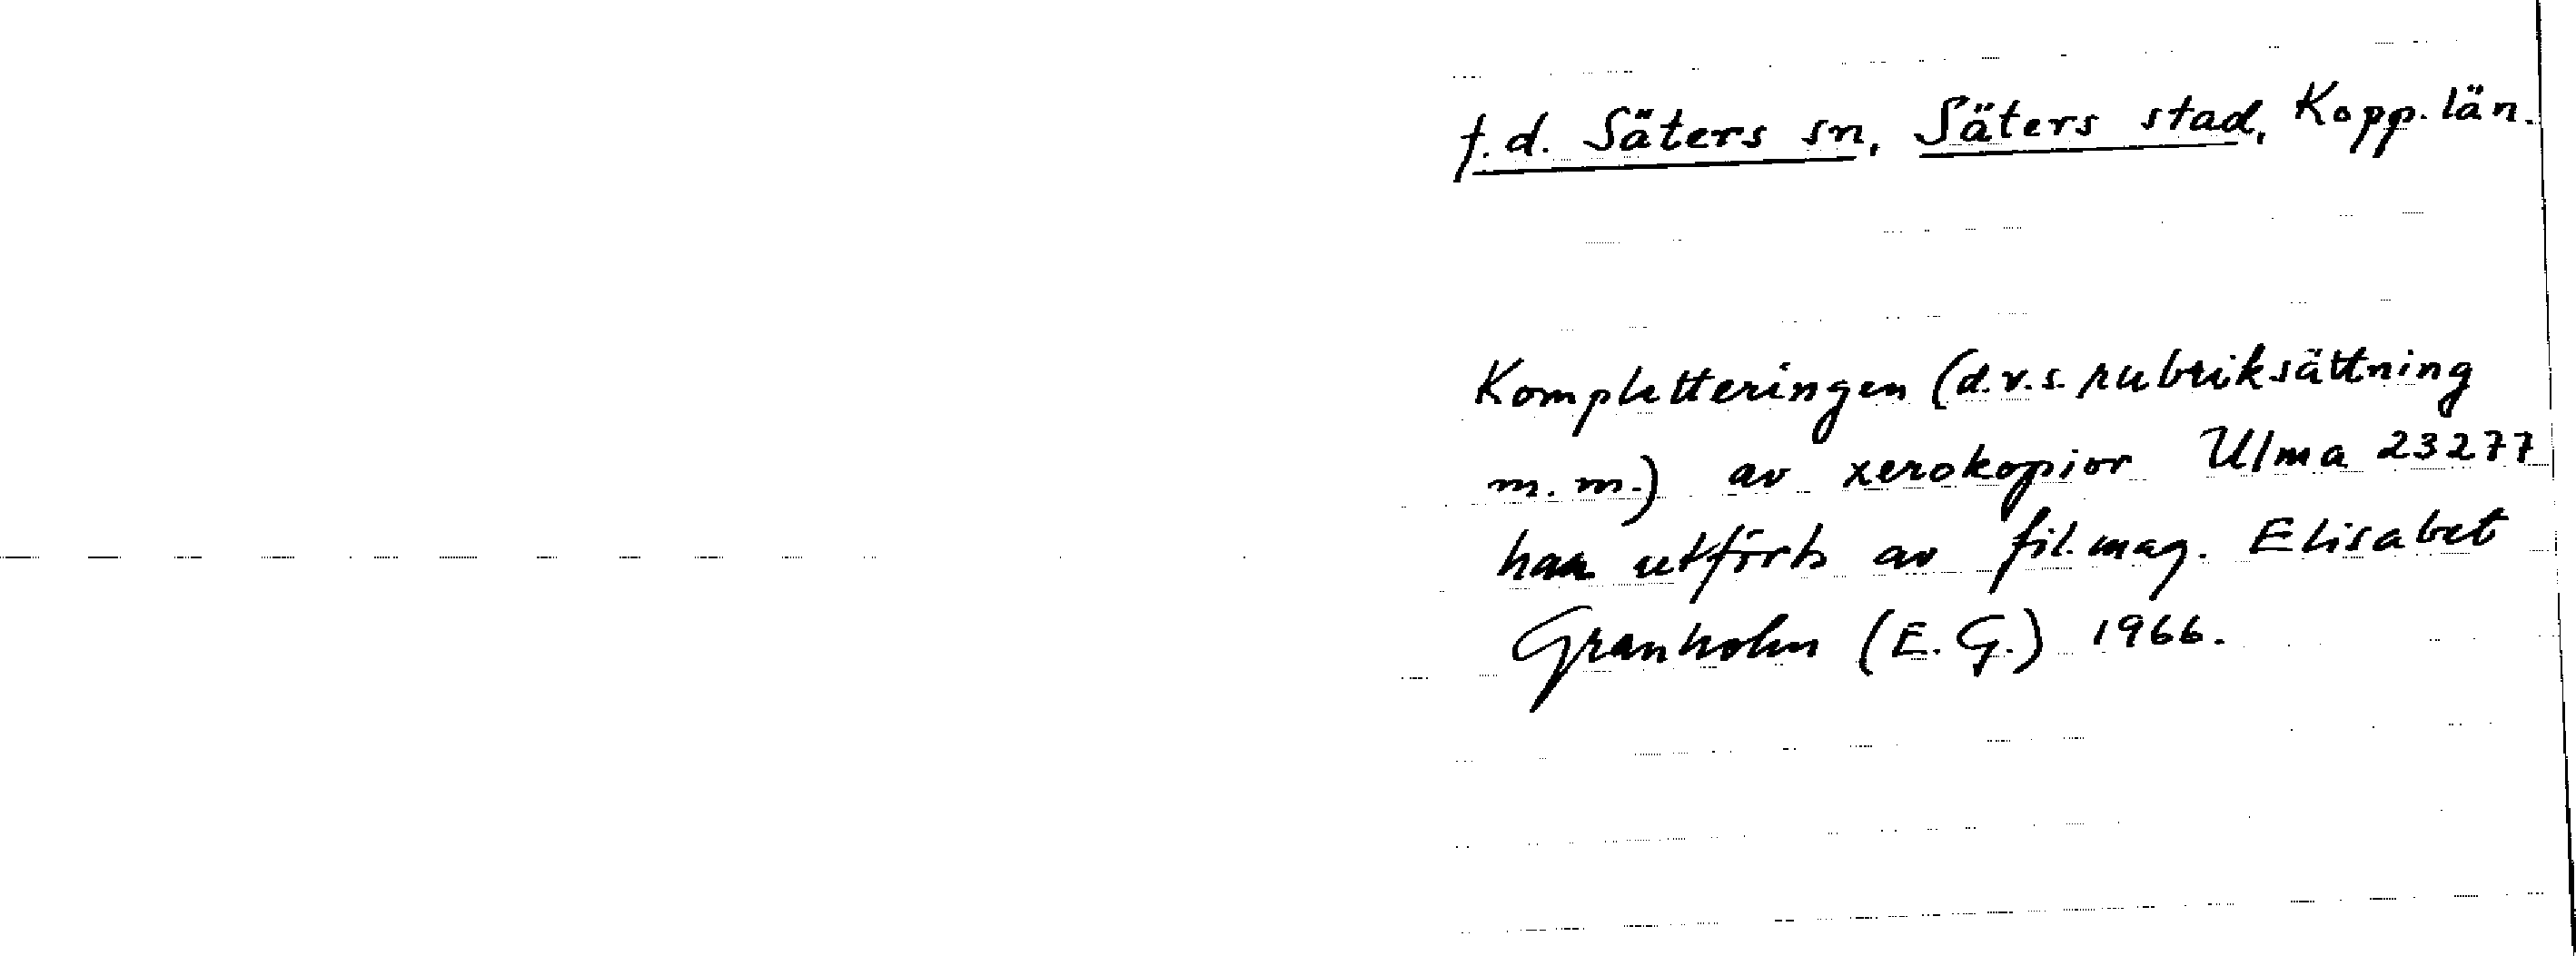 f.d. Säters sn, Säters stad, Kopp. län.
Kompletteringen (d.v.s. rubriksättning
m.m.) av xerokopior Ulma 23277
har utförts av fil.mag. Elisabet
Granholm (E.G.) 1966.